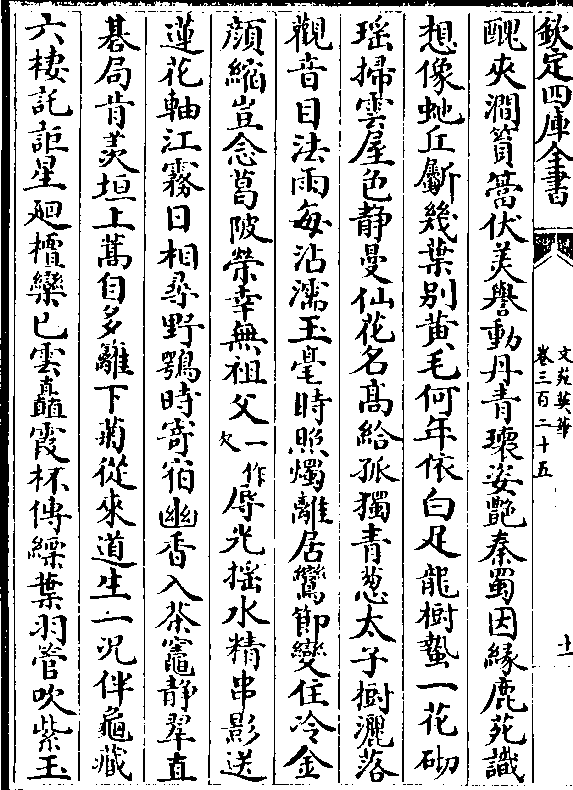 欽定四庫全書
文苑英華
卷三百二十五
十一
醜夾澗篔簹伏美譽動丹青瓌姿艶秦蜀因緣鹿苑識
想像虵丘斸幾葉别黄毛何年依白足龍樹蟄一花砌
瑶掃雲屋色静曼仙花名髙給孤獨青葱太子樹灑落
觀音目法雨每沾濡玉毫時照燭離居鸞節變住冷金
顔縮豈念葛陂榮幸無祖父一作欠辱光揺水精串影送
蓮花軸江霧日相尋野鶚時寄宿幽香入茶竈静翠直
棊局肯羡垣上蒿自多籬下菊從來道生一况伴龜藏
六棲託詎星廻檀欒已雲矗霞杯傳縹葉羽管吹紫玉